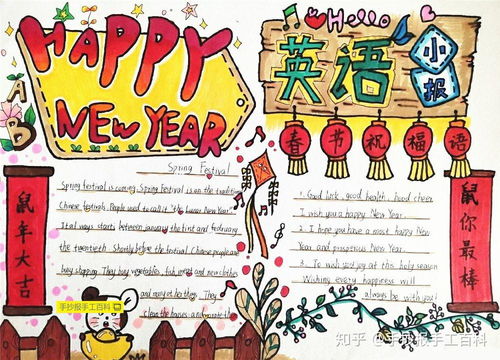 HAPPY
NEW YEAR
Hello
英语
小报
A
B
春节祝福语
鼠年大吉
鼠你最棒
Spring Festival
Spring festival is coming. Spring Festival is on the tradition
Chinese festivals. People used to call it "the Lunar New Year"
It always starts between January the first and February
the twentieth. Shortly before the festival Chinese people are
busy shopping. They buy vegetables, fish, meat and new clothes
and many other things. They
clean the houses and
1. Good luck, good health, hood cheer
I wish you a happy New Year.
2. I hope you have a most happy New
Year and prosperous New Year.
3. To wish you joy at this holy season
Wishing every happiness will
always be with you!
手抄报手工百科
知乎 @手抄报手工百科